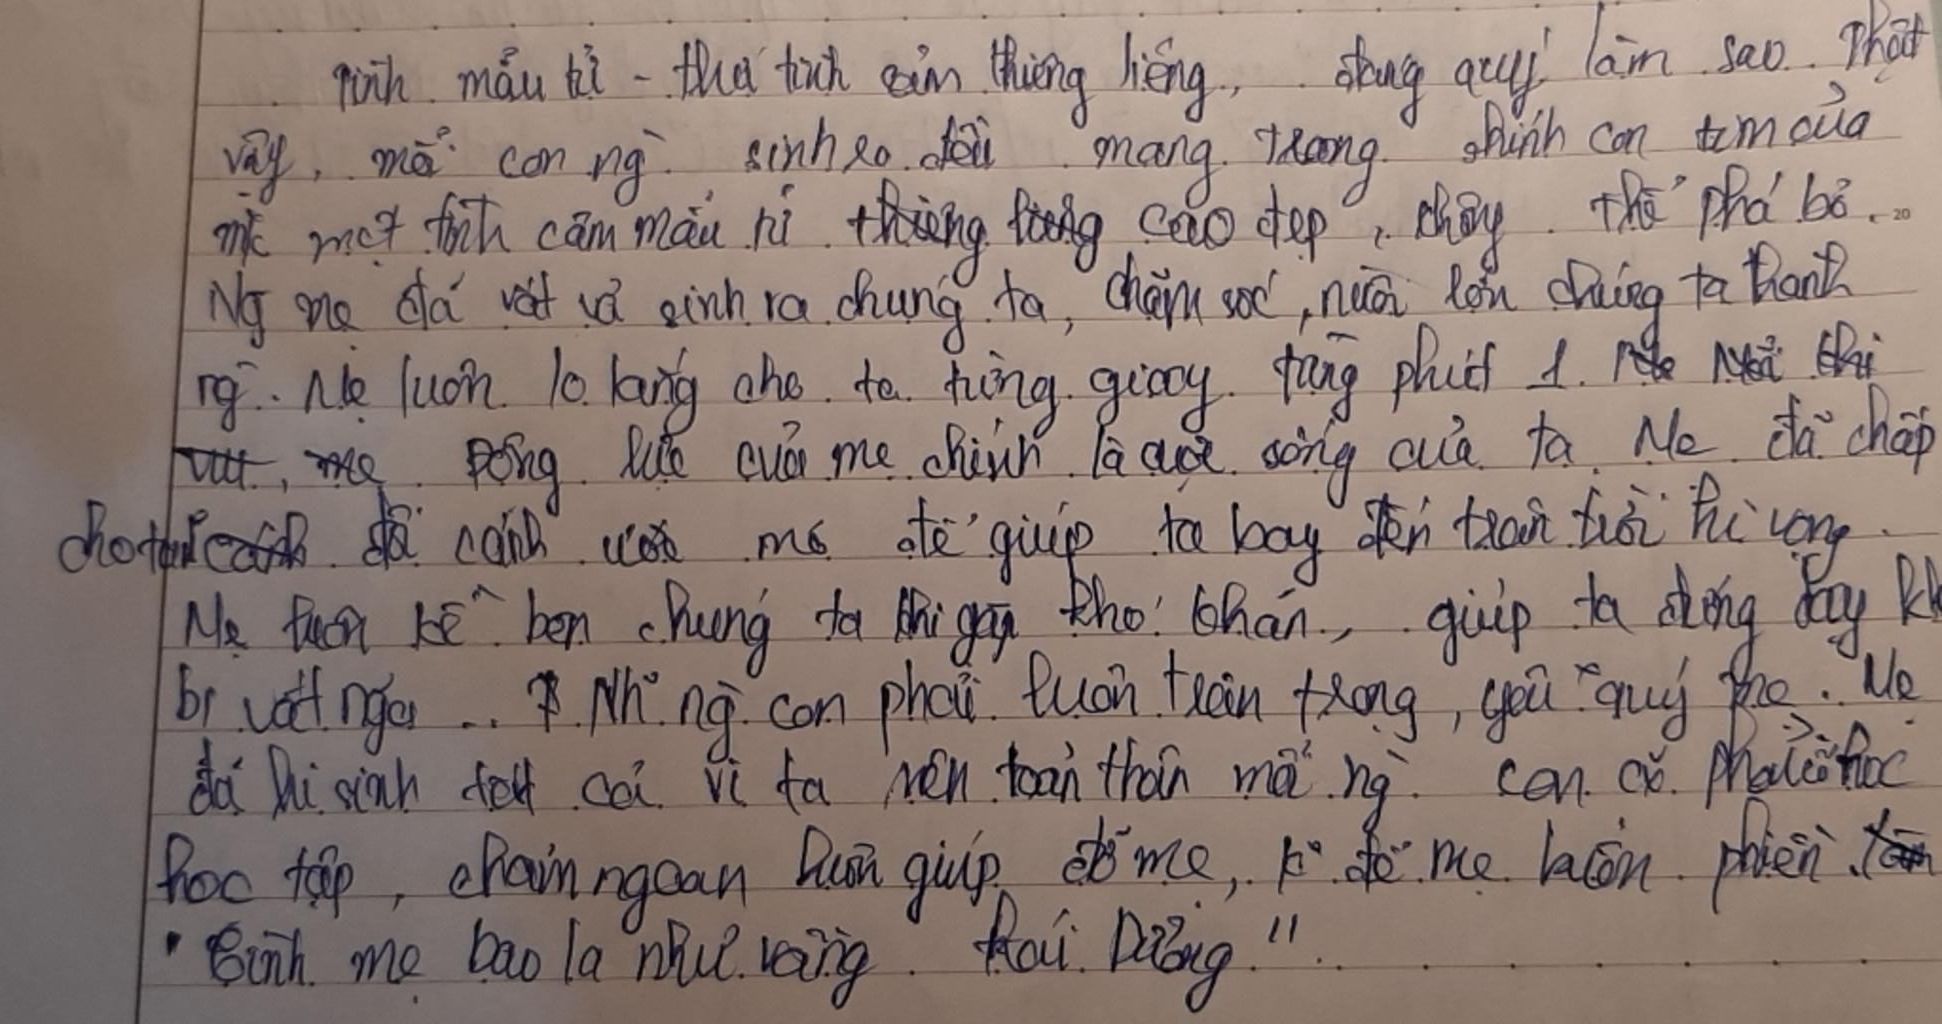 Tình mẫu tử - thứ tình cảm thiêng liêng, đáng quý làm sao. Thật
vậy, mỗi con ng` sinh ra đều mang trong chính con tim của
mk một tình cảm mẫu tử thiêng liêng cao đẹp, thể phá bỏ.
Ng mẹ đã vất vả sinh ra chúng ta, chăm sóc, nuôi lớn chúng ta thành
ng`. Mẹ luôn lo lắng cho ta từng giây từng phút 1.
Động lực của mẹ chính là cuộc sống của ta. Mẹ đã chắp
cho ta đôi cánh ước mơ để giúp ta bay đến trân trời hi vọng.
Mẹ luôn kề bên chúng ta khi gặp khó khăn, giúp ta đứng dậy kh
bị vất ngã ... Nh~ ng` con phải luôn trân trọng, yêu quý mẹ. Mẹ
đã hi sinh tất cả vì ta nên toàn thân mỗi ng` con phải cố
học tập, chăm ngoan luôn giúp đỡ mẹ, k° để mẹ buồn phiền.
"Tình mẹ bao la như vầng thái Dương".